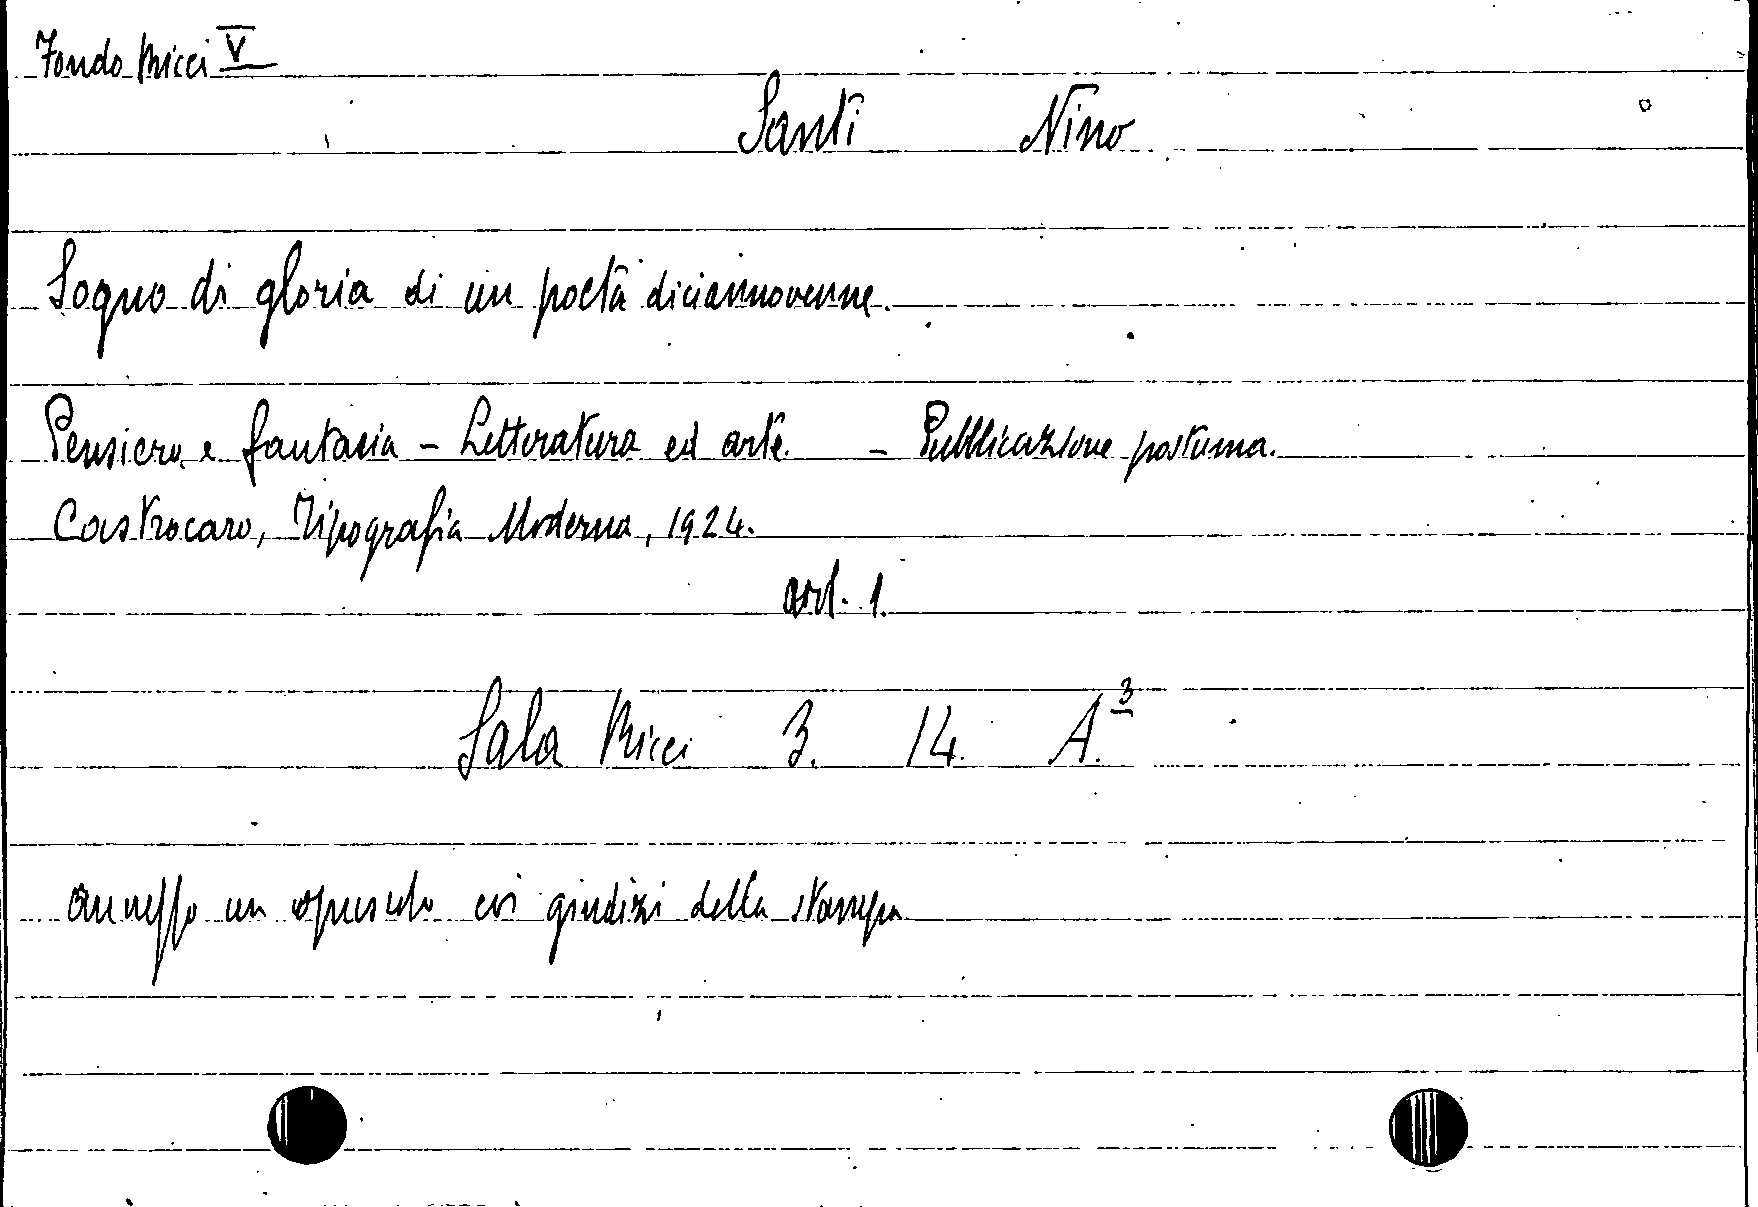 Fondo Ricci V
Santi Nino
Sogno di gloria di un poeta diciannovenne.
Pensiero e fantasia - Letteratura ed arte. - Pubblicazione postuma.
Castrocaro, Tipografia Moderna, 1924.
vol. 1.
Sala Ricci 3. 14. A.3
annesso un opuscolo coi giudizi della stampa